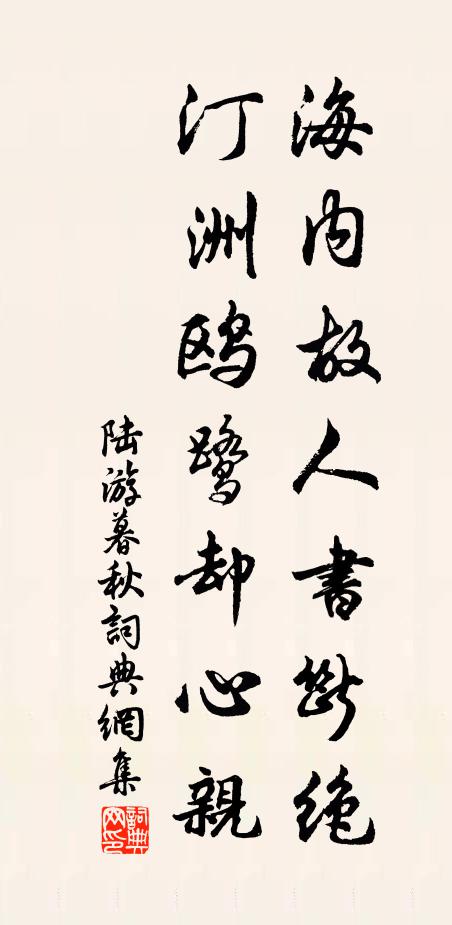 海内故人書斷絶
汀洲鸥鹭却心親
陆游暮秋詞典網集
詞典網印